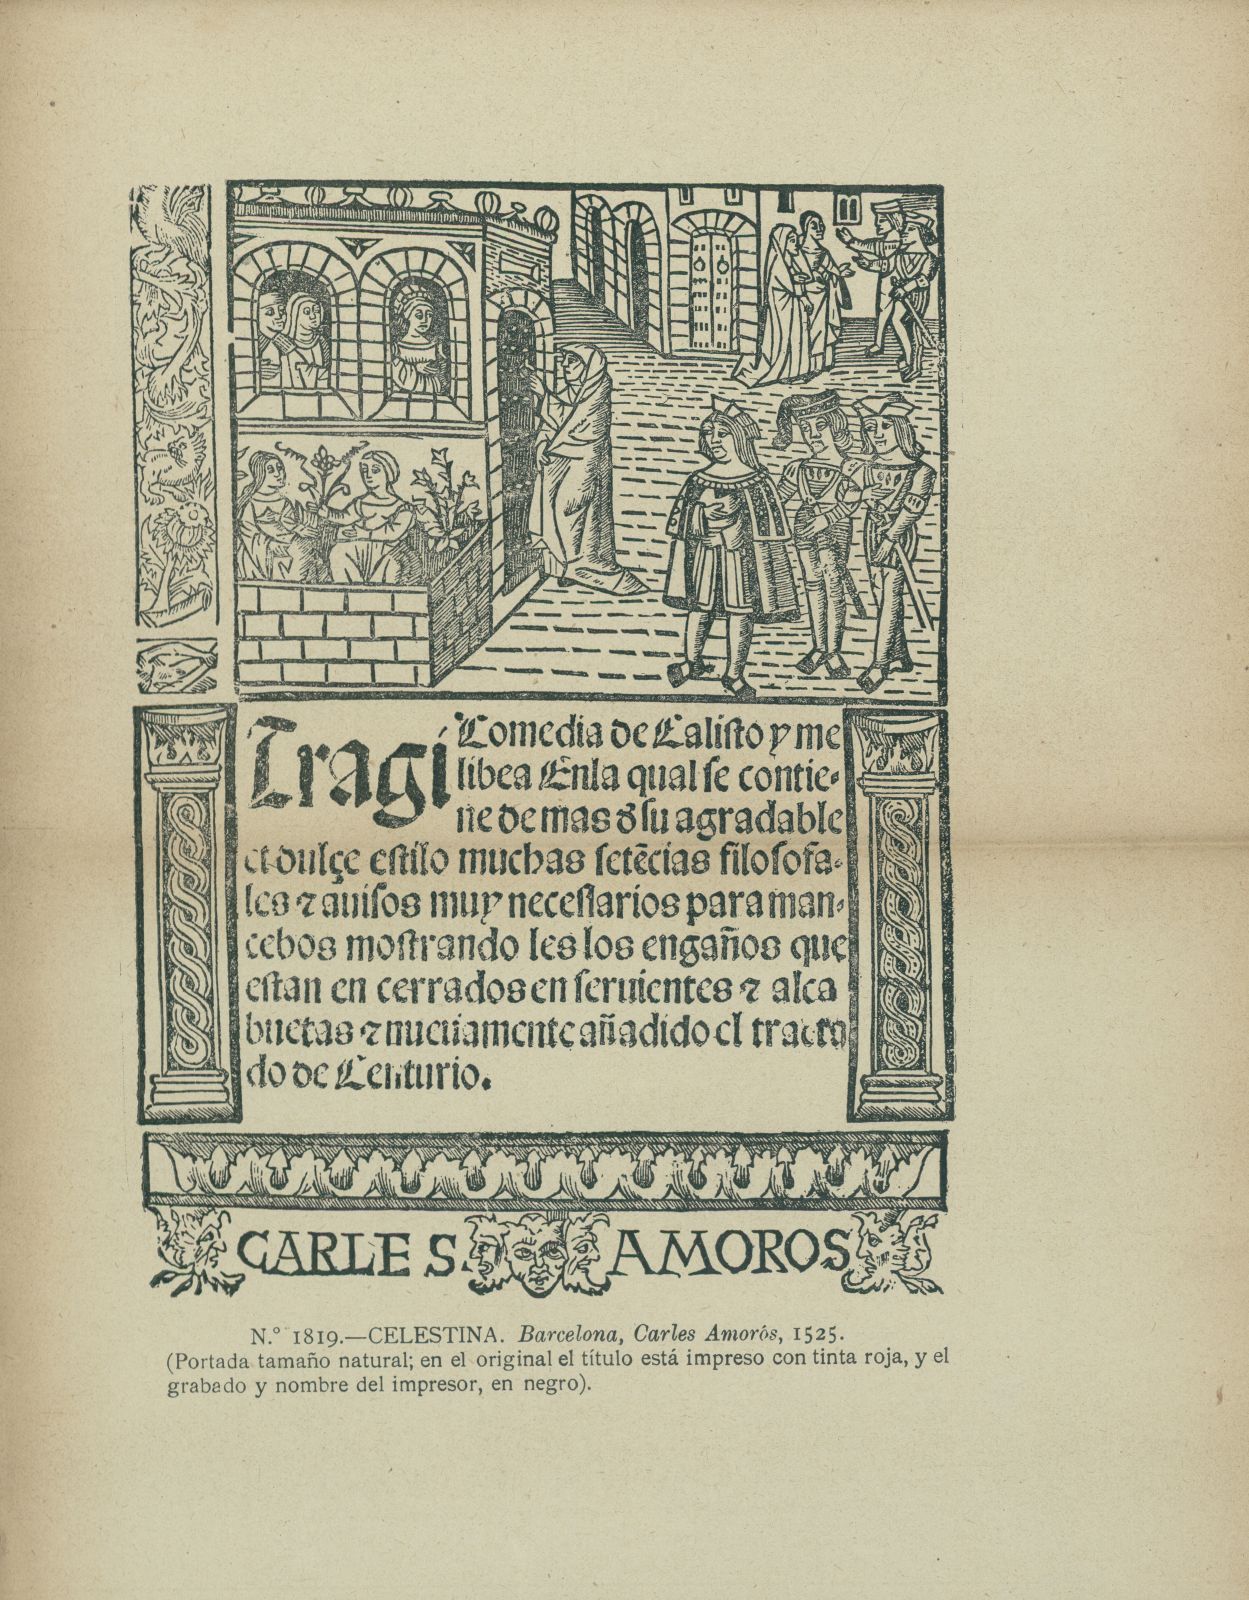 Tragi Comedia de Calisto y me
libea Enla qual se contie-
ne de mas đ su agradable
et dulçe estilo muchas setēcias filosofa-
les ⁊ auisos muy necessarios para man-
cebos mostrando les los engaños que
estan en cerrados en seruientes ⁊ alca
huetas ⁊ nueuamente añadido el tracta
do de Centurio.
CARLES AMOROS
N.º 1819.—CELESTINA. Barcelona, Carles Amorós, 1525.
(Portada tamaño natural; en el original el título está impreso con tinta roja, y el
grabado y nombre del impresor, en negro).